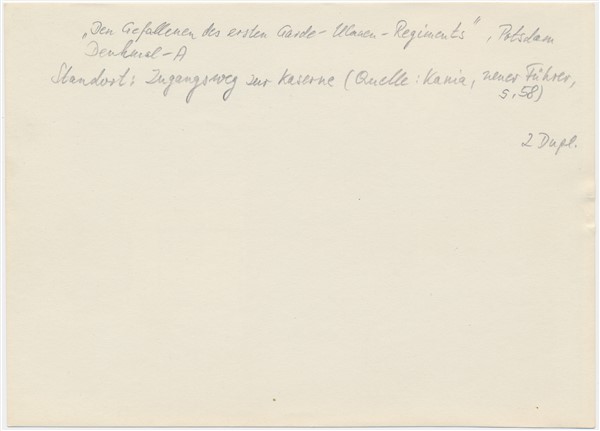 „Den Gefallenen des ersten Garde-Ulanen-Regiments", Potsdam
Denkmal-A
Standort: Zugangsweg zur Kaserne (Quelle: Kania, neuer Führer,
S. 58)
2 Dupl.